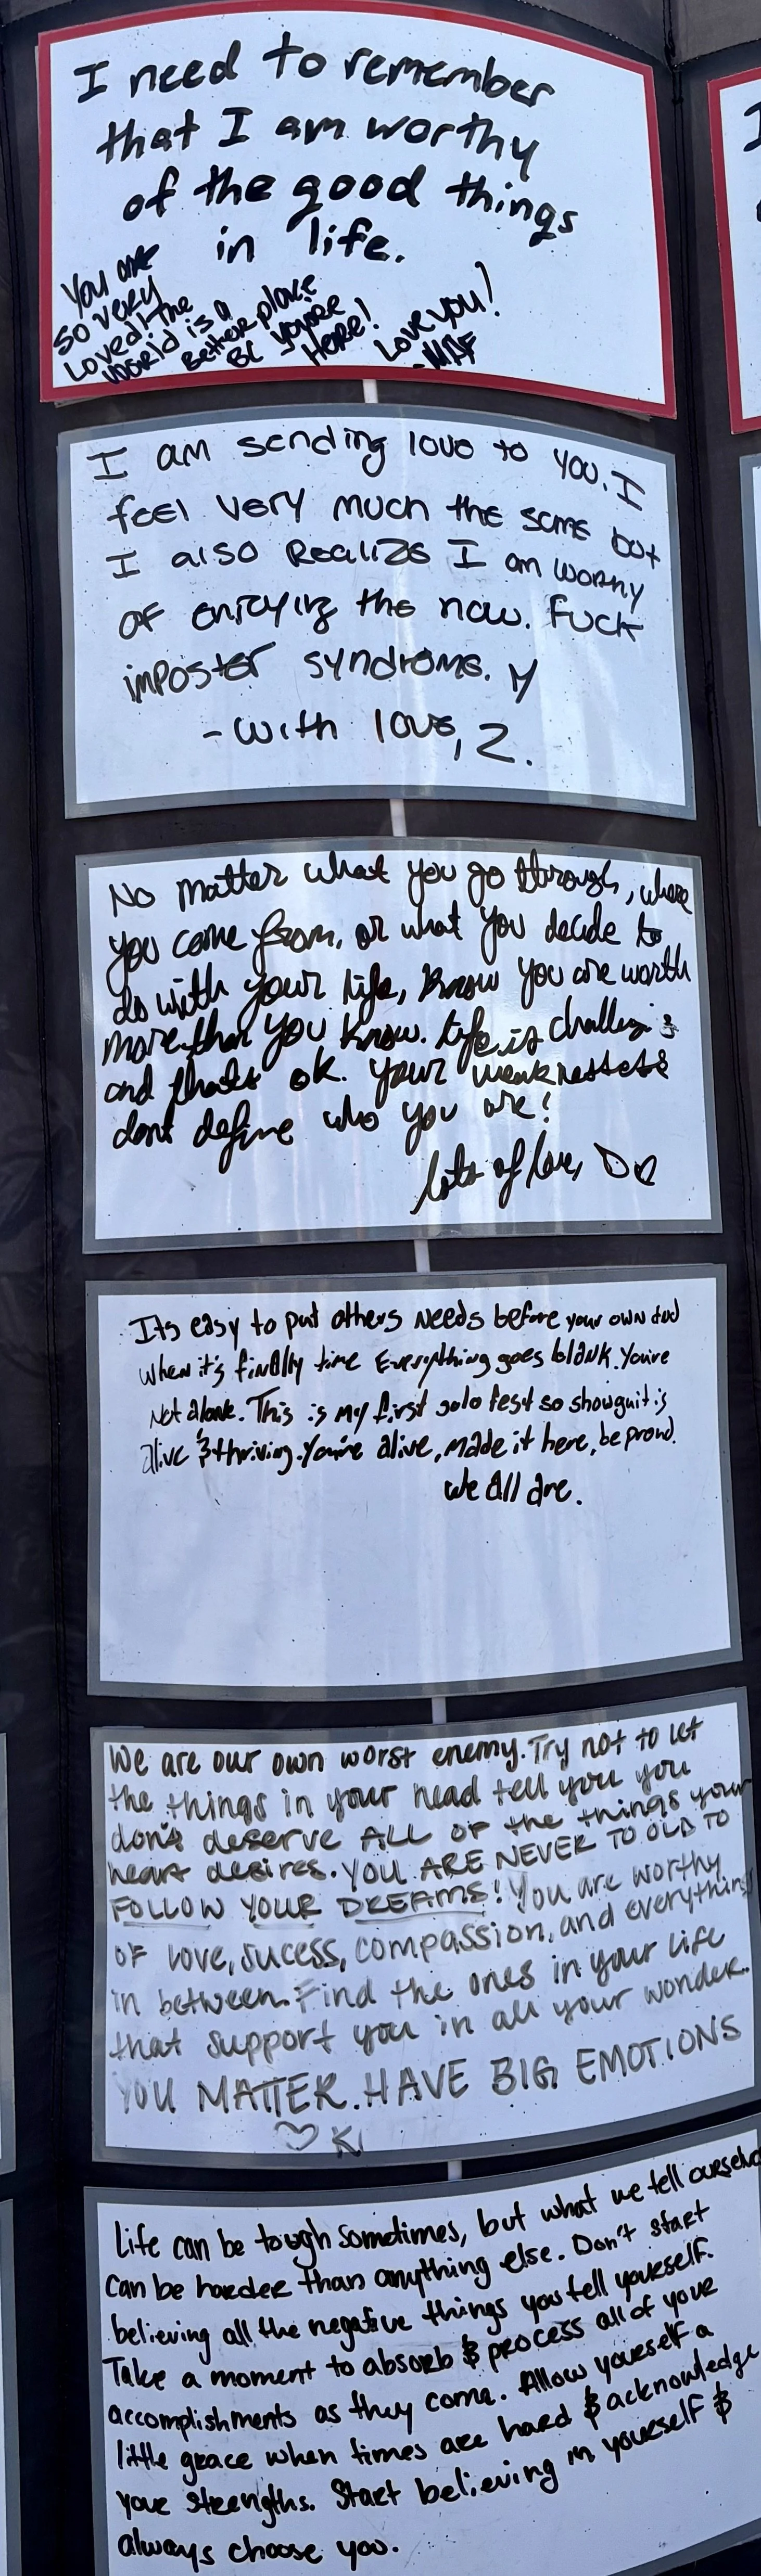 I need to remember
that I am worthy
of the good things
in life.
You are
so very
Loved! The
World is a
Better place
BC you're
Here!
Love you!
I am sending love to you. I
feel very much the same but
I also Realize I am worthy
of enjoying the now. Fuck
imposter syndrome.
- with love, Z.
No matter what you go through, where
you come from, or what you decide to
do with your life, know you are worth
more than you know. Life is challeng
and thats ok. your weaknesses
dont define who you are!
lots of love,
Its easy to put others needs before your own and
when it's finally time Everything goes blank. You're
Not alone. This is my first solo fest so show
alive & thriving. You're alive, made it here, be proud.
We All are.
We are our own worst enemy. Try not to let
the things in your head tell you you
don't deserve ALL OF the things your
heart desires. YOU ARE NEVER TO OLD TO
FOLLOW YOUR DREAMS! You are worthy
OF love, sucess, compassion, and everything
in between. Find the ones in your life
that support you in all your wonder.
YOU MATTER. HAVE BIG EMOTIONS
♡ K
Life can be tough sometimes, but what we tell ourselves
can be harder than anything else. Don't start
believing all the negative things you tell yourself.
Take a moment to absorb & process all of your
accomplishments as they come. Allow yourself a
little grace when times are hard & acknowledge
your strengths. Start believing in yourself &
always choose you.